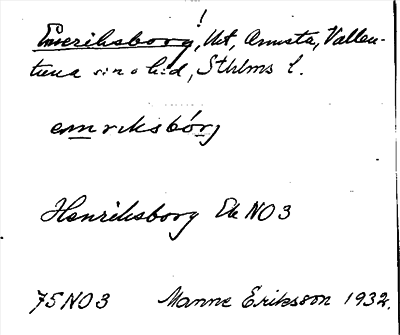 !
Emeriksborg, Ut, Arnista, Vallen-
tuna sn o hd, Sthlms l.
emriksbórj
Henriksborg Ek NO3
75NO3 Manne Eriksson 1932.